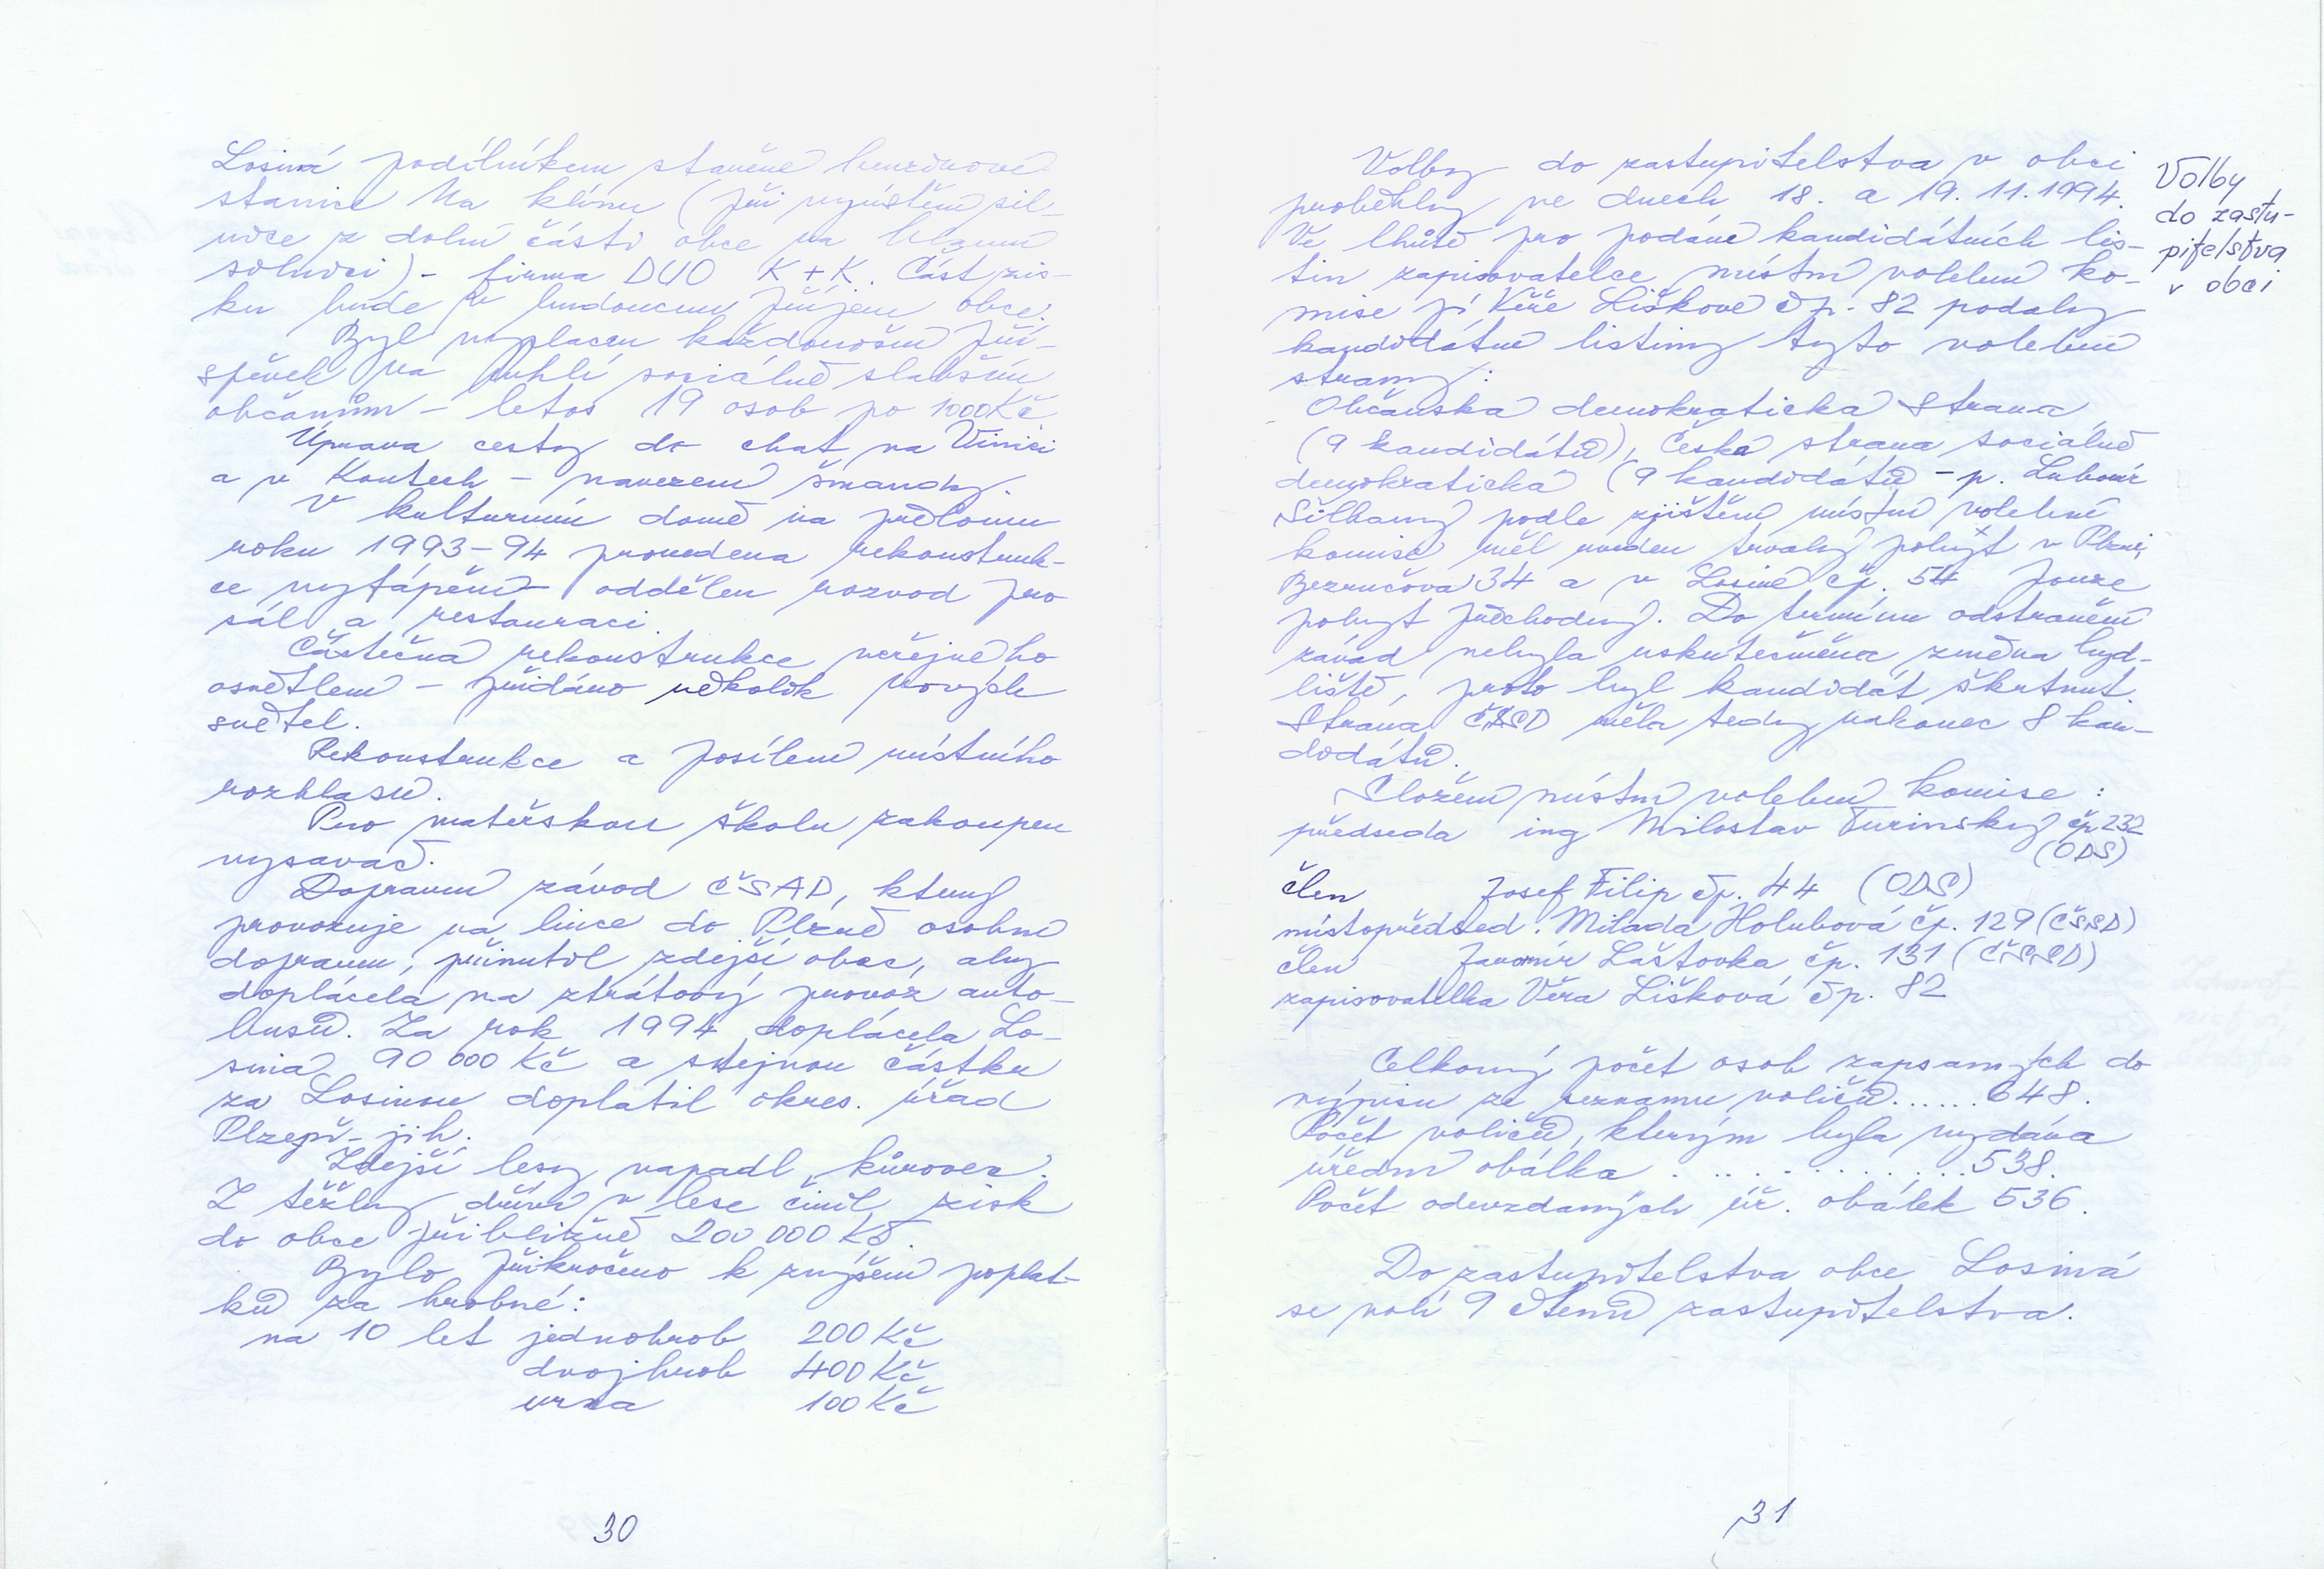 Losiná podílníkem stavěné benzinové
stanice Na klínu (při vyústění sil-
nice z dolní části obce na hlavní
silnici) - firma DUO K + K. Část zis-
ku bude v budoucnu příjem obce.
Byl vyplacen každoroční pří-
spěvek na uhlí sociálně slabším
občanům - letos 19 osob po 1000 Kč
Úprava cesty do chat na Vinici
a v Koutech - navezení škvandry.
V kulturním domě na přelomu
roku 1993-94 provedena rekonstruk-
ce vytápění - oddělen rozvod pro
sál a restauraci.
Částečná rekonstrukce veřejného
osvětlení - přidáno několik nových
světel.
Rekonstrukce a posílení místního
rozhlasu.
Pro mateřskou školu zakoupen
vysavač.
Dopravní závod ČSAD, který
provozuje na lince do Plzně osobní
dopravu, přinutil zdejší obec, aby
doplácela na ztrátový provoz auto-
busů. Za rok 1994 doplácela Lo-
siná 90 000 Kč a stejnou částku
za Losinou doplatil okres. úřad
Plzeň - jih.
Zdejší lesy napadl kůrovec.
Z těžby dříví v lese činil zisk
do obce přibližně 200 000 Kč.
Bylo přikročeno k zvýšení poplat-
ků za hrobné:
na 10 let jednohrob 200 Kč
dvojhrob 400 Kč
urna 100 Kč
30
Volby do zastupitelstva v obci
proběhly ve dnech 18. a 19. 11. 1994.
Ve lhůtě pro podání kandidátních lis-
tin zapisovatelce místní volební ko-
mise pí Věře Liškové čp. 82 podaly
kandidátní listiny tyto volební
strany:
Občanská demokratická strana
(9 kandidátů), Česká strana sociálně
demokratická (9 kandidátů - p. Lubomír
Šilhavý podle zjištění místní volební
komise měl uveden trvalý pobyt v Plzni,
Bezručova 34 a v Losiné čp. 54 pouze
pobyt přechodný. Do termínu odstranění
závad nebyla uskutečněna změna byd-
liště, proto byl kandidát škrtnut.
Strana ČSSD měla tedy nakonec 8 kan-
didátů.
Složení místní volební komise :
předseda ing Miloslav Turinský čp 232
(ODS)
člen Josef Filip čp. 44 (ODS)
místopředsed. Milada Holubová čp. 129 (ČSSD)
člen Jaromír Laštovka čp. 131 (ČSSD)
zapisovatelka Věra Lišková čp. 82
Celkový počet osob zapsaných do
výpisu ze seznamu voličů......648.
Počet voličů, kterým byla vydána
úřední obálka . . . . . . . . . . . . 538.
Počet odevzdaných úř. obálek 536.
Do zastupitelstva obce Losiná
se volí 9 členů zastupitelstva.
31
Volby
do zastu-
pitelstva
v obci